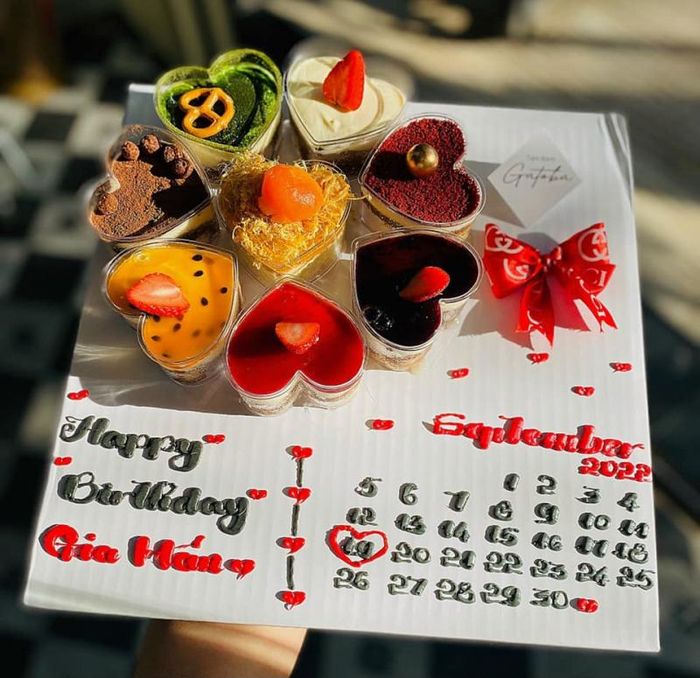 Happy
Birthday
Gia Hân
September
2022
1 2 3 4
5 6 7 8 9 10 11
12 13 14 15 16 17 18
19 20 21 22 23 24 25
26 27 28 29 30